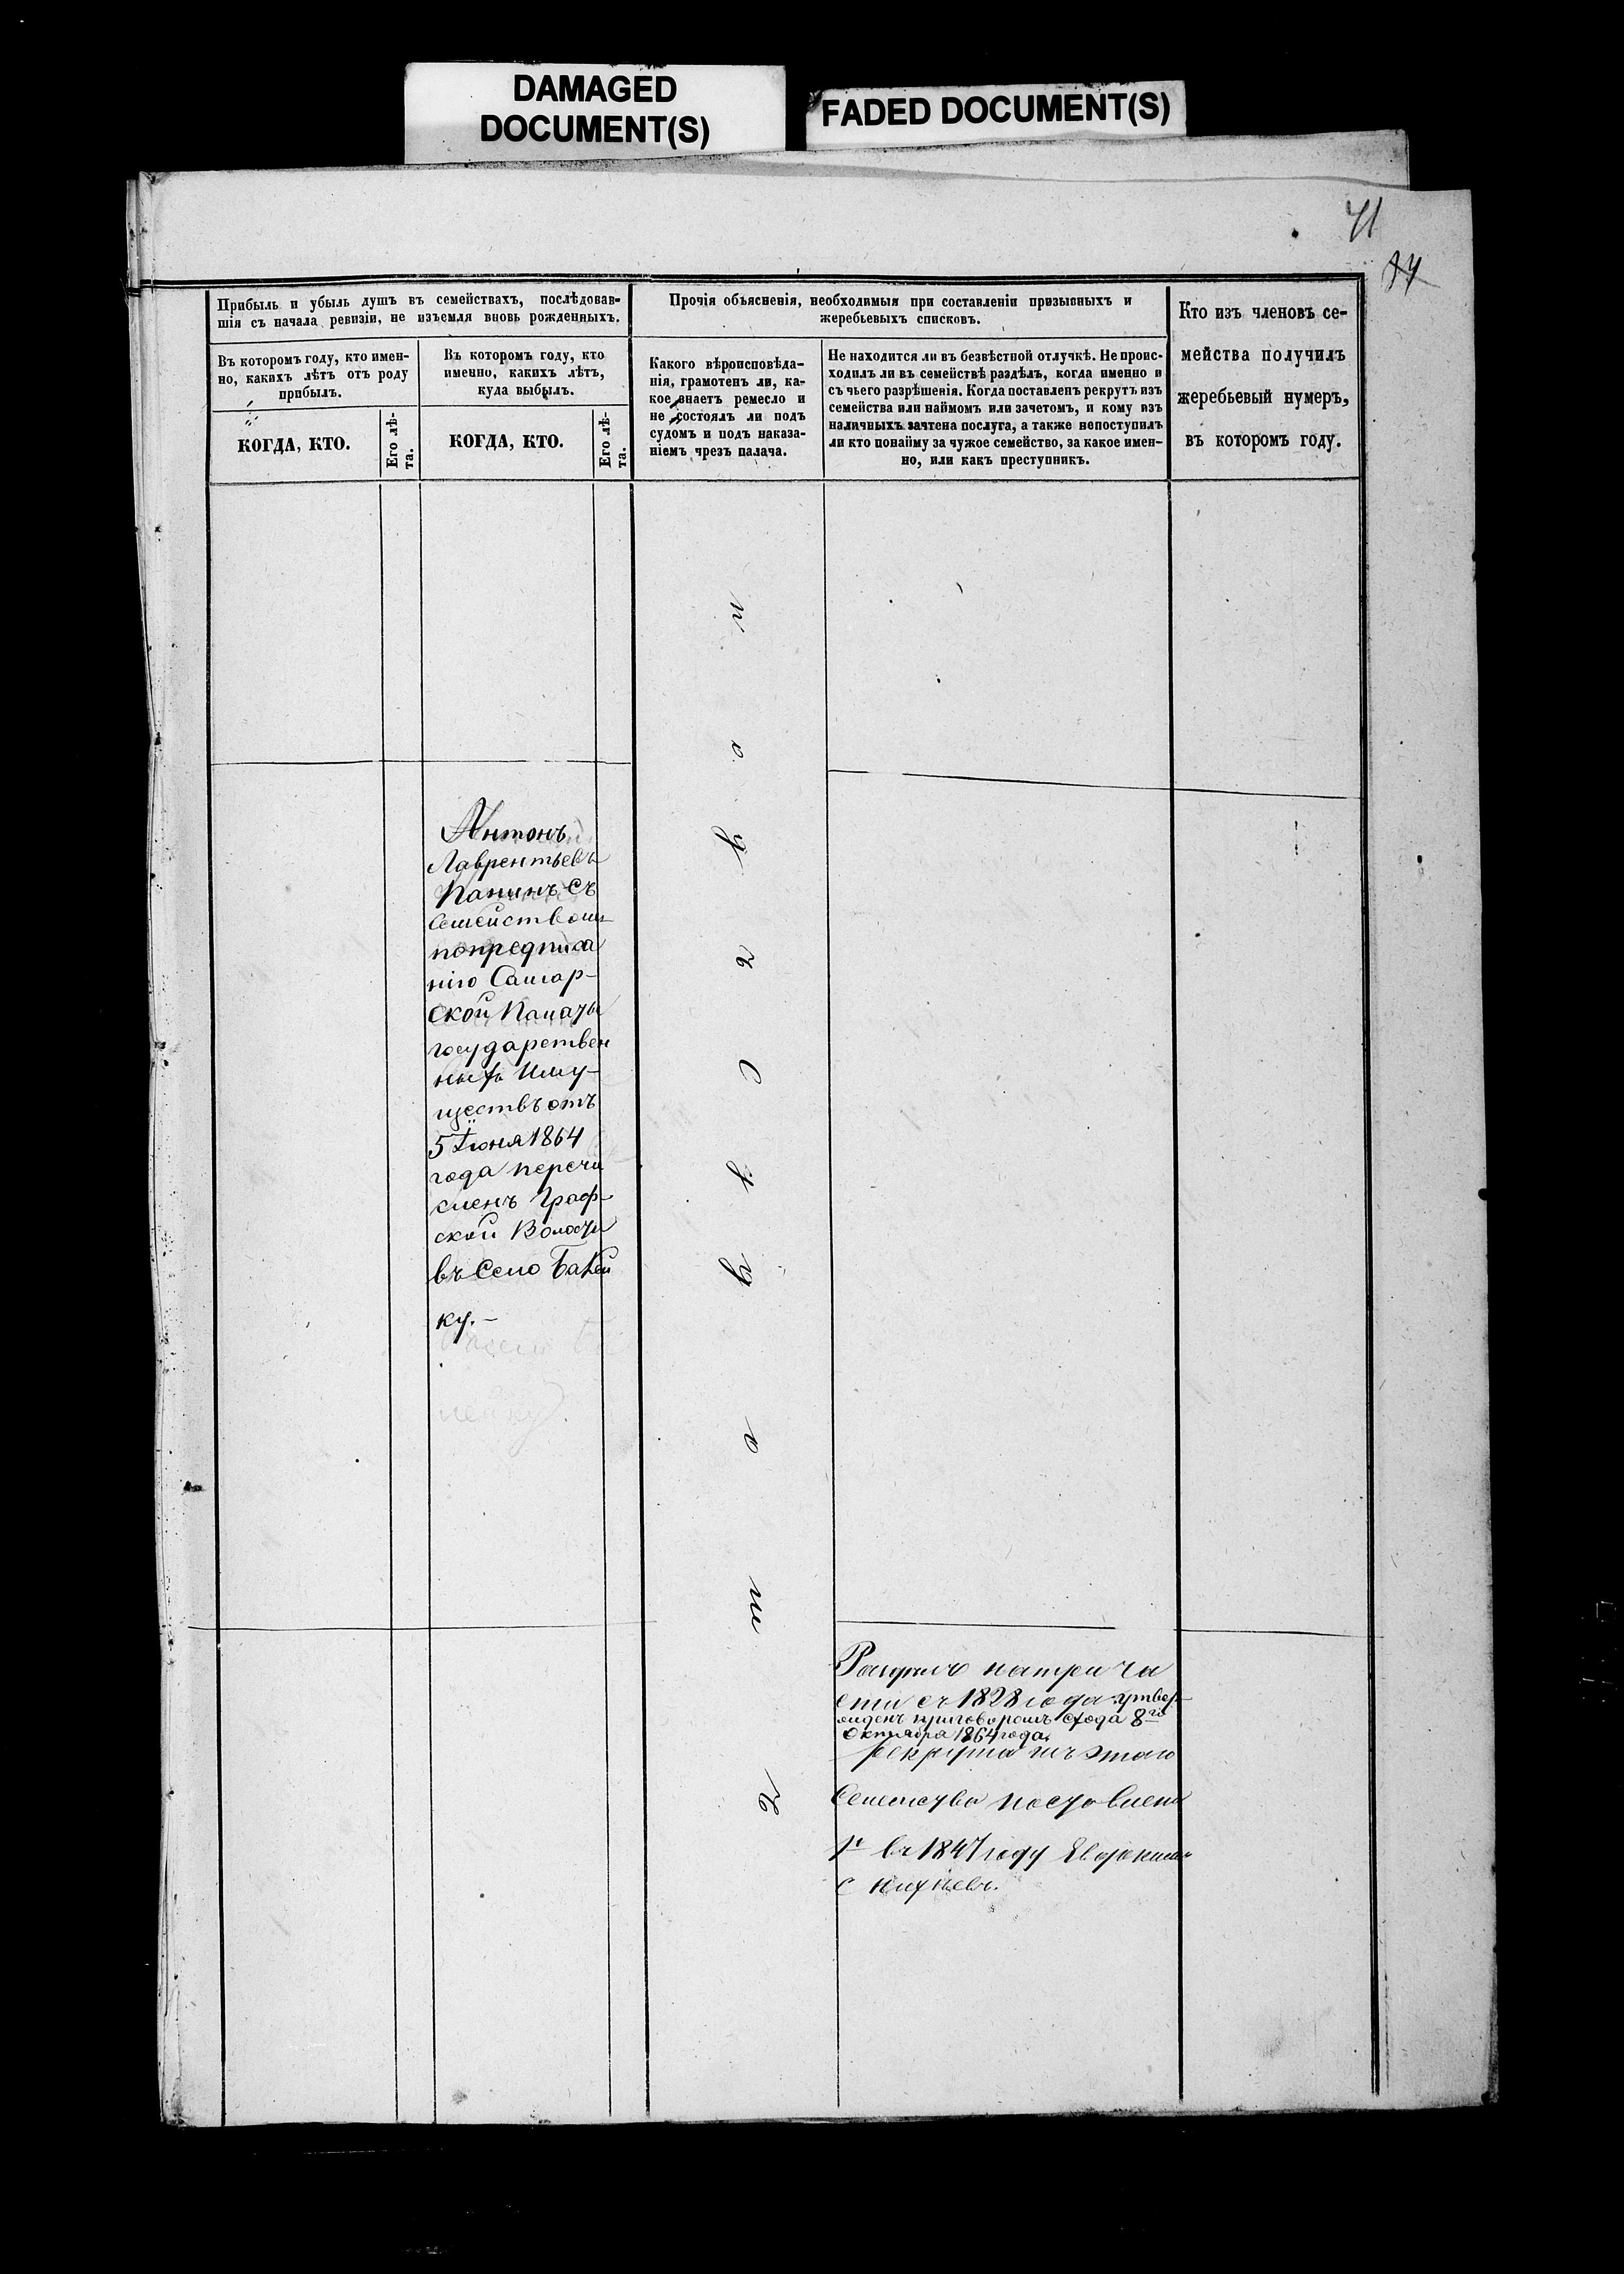 DAMAGED
DOCUMENT(S)
FADED DOCUMENT(S)
41
Прибыль и убыль душъ въ семействахъ, послѣдовав-
шія съ начала ревизіи, не изъемля вновь рожденныхъ.
Прочія объясненія, необходимыя при составленіи призывныхъ и
жеребьевыхъ списковъ.
Кто изъ членовъ се-
мейства получилъ
жеребьевый нумеръ,
въ которомъ году.
Въ которомъ году, кто имен-
но, какихъ лѣтъ отъ роду
прибылъ.
Въ которомъ году, кто
именно, какихъ лѣтъ,
куда выбылъ.
Какого вѣроисповѣда-
нія, грамотенъ ли, ка-
кое знаетъ ремесло и
не состоялъ ли подъ
судомъ и подъ наказа-
ніемъ чрезъ палача.
Не находится ли въ безвѣстной отлучкѣ. Не проис-
ходилъ ли въ семействѣ раздѣлъ, когда именно и
съ чьего разрѣшенія. Когда поставленъ рекрутъ изъ
семейства или наймомъ или зачетомъ, и кому изъ
наличныхъ зачтена послуга, а также непоступилъ
ли кто понайму за чужое семейство, за какое имен-
но, или какъ преступникъ.
КОГДА, КТО.
Его лѣ-
та.
КОГДА, КТО.
Его лѣ-
та.
Антонъ
Лаврентьевъ
Панинъ съ
Семействомъ
попредписа
нію Самар-
ской Палаты
государствен
ныхъ Иму-
ществъ отъ
5 Іюня 1864
года перечи
сленъ Граф-
ской Волости
въ Село
ку. —
Раздѣлъ натри ча
сти съ 1828 года утвер-
жденъ приговоромъ схода 8го
Октября 1864 года.
рекрута изъ этаго
Семейства поставлена
въ 1847 году Евдокимъ